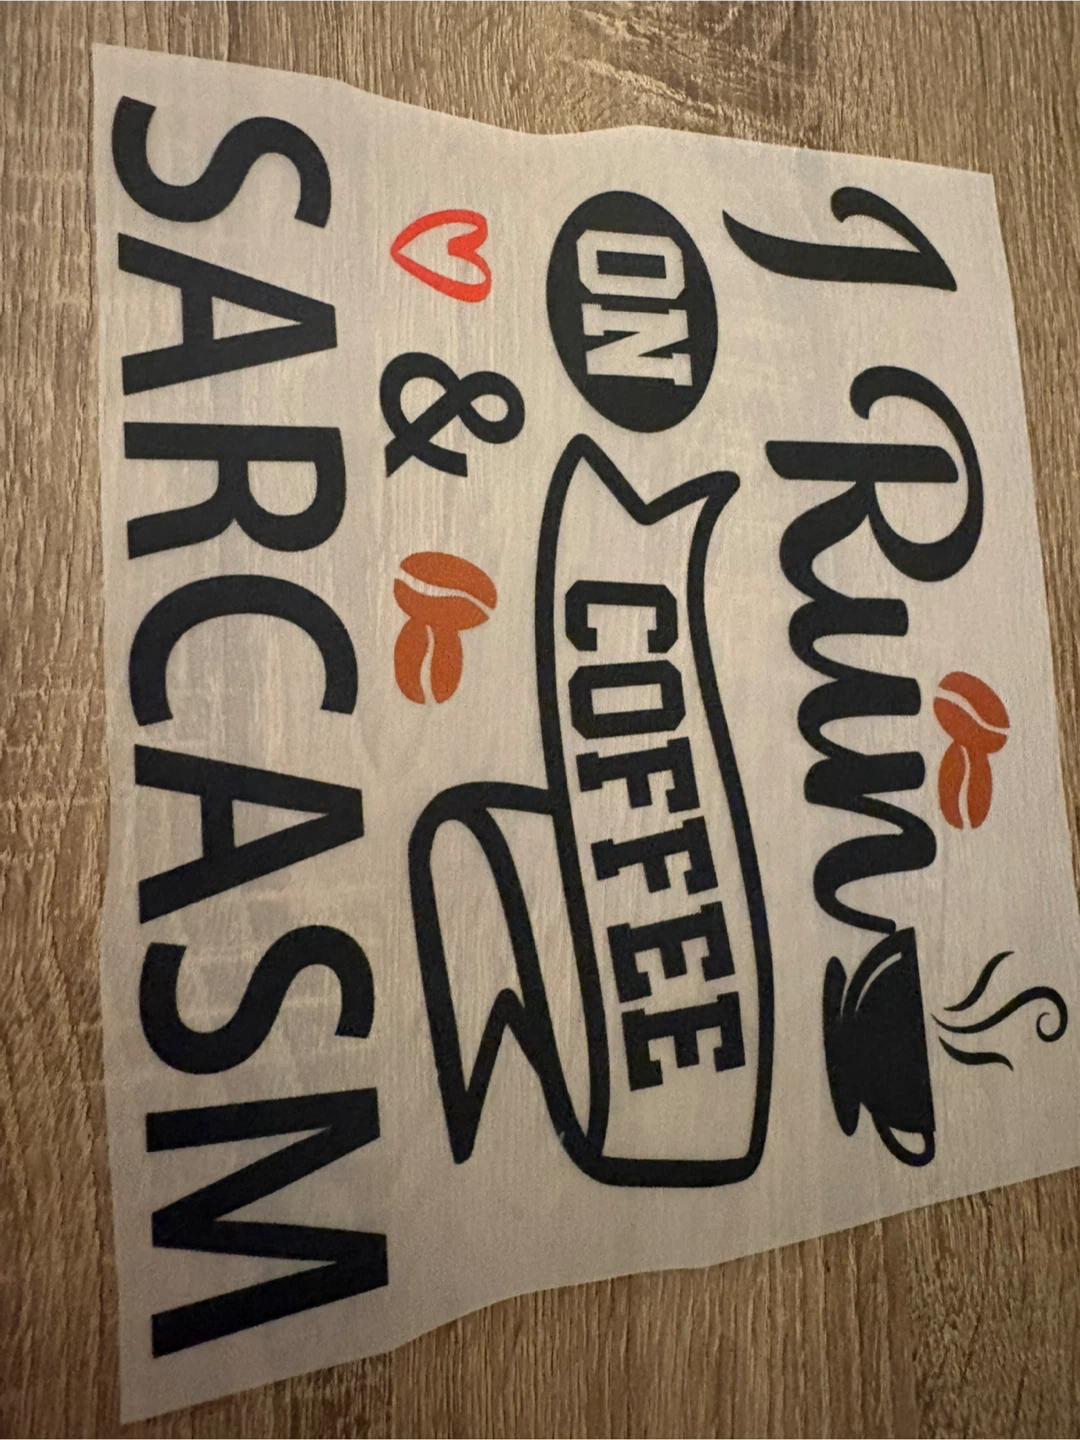 I Run
ON COFFEE
&
SARCASM